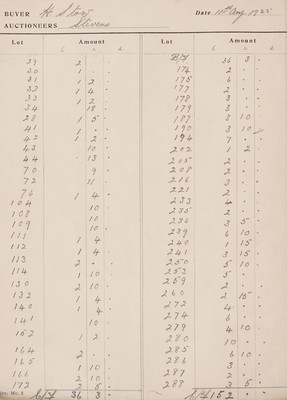 BUYER H. Stoat
Date 11th Aug. 1925
AUCTIONEERS Stevens
Lot Amount Lot Amount
£ s d £ s d
29 2 . .
30 1 . .
31 1 2 .
32 1 4 .
33 1 2 .
34 18 .
38 1 5 .
41 1 . .
42 1 2 .
43 10 .
44 13 .
70 9 .
72 11 .
76 1 4 .
104 10 .
108 10 .
109 10 .
111 1 4
112 1 4 .
113 2 . .
114 1 10 .
130 2 10 .
132 1 4 .
140 1 4 .
141 10 .
152 1 2 .
164 2 . .
165 1 . .
166 2 10 .
172 2 5 .
c/f 36 3 .
B/F 36 3 .
174 2 .
175 6 .
177 2 .
178 3 .
179 3 .
187 8 10
190 3 10
194 7 .
202 1 2
205 2 .
208 2 .
216 3 .
221 2 .
233 4 .
235 2 .
236 3 5
239 6 10
240 1 15
241 3 15
250 5 10
253 5 .
259 2 .
260 2 15
272 4 .
274 6 .
279 4 10
280 10 .
285 6 10
286 3 .
287 2 .
288 3 5
c/f 152